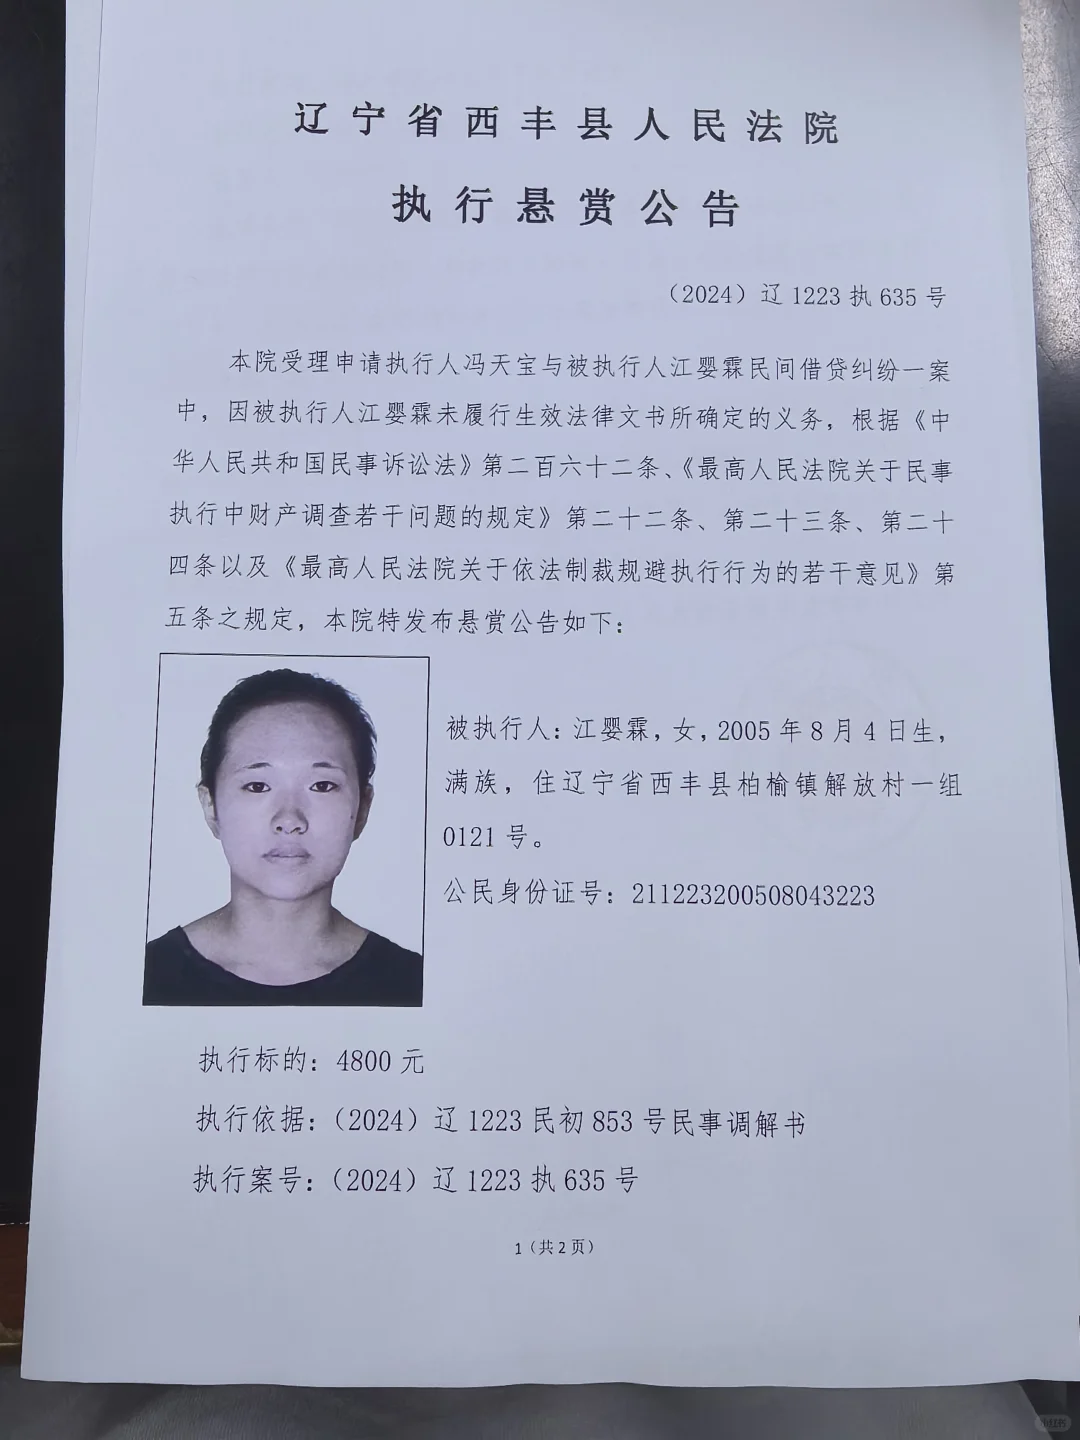 辽宁省西丰县人民法院
执行悬赏公告
（2024）辽1223执635号
本院受理申请执行人冯天宝与被执行人江婴霖民间借贷纠纷一案
中，因被执行人江婴霖未履行生效法律文书所确定的义务，根据《中
华人民共和国民事诉讼法》第二百六十二条、《最高人民法院关于民事
执行中财产调查若干问题的规定》第二十二条、第二十三条、第二十
四条以及《最高人民法院关于依法制裁规避执行行为的若干意见》第
五条之规定，本院特发布悬赏公告如下：
被执行人：江婴霖，女，2005年8月4日生，
满族，住辽宁省西丰县柏榆镇解放村一组
0121号。
公民身份证号：211223200508043223
执行标的：4800元
执行依据：（2024）辽1223民初853号民事调解书
执行案号：（2024）辽1223执635号
1（共2页）
小红书